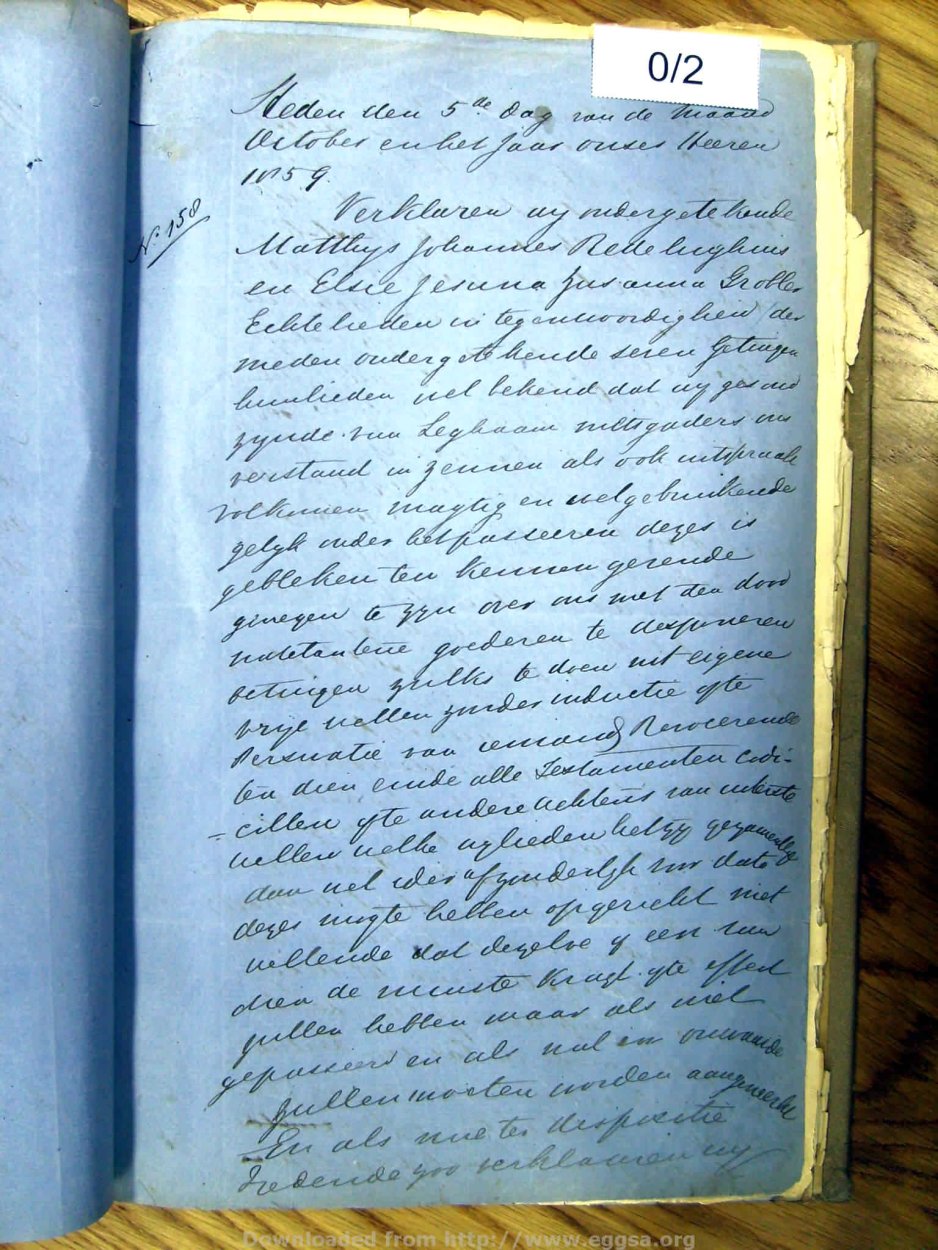 0/2
Heden den 5de dag van de Maand
October en het Jaar onses Heeren
1859.
No. 158
Verklaren wy ondergetekende
Matthys Johannes Redelinghuis
en Elsie Jesina Susanna Grobler
Echtelieden in tegenwoordigheid der
meden ondergetekende seven Getuigen
hunlieden wel bekend dat wy gesond
zynde van Leghaam mitsgaders ons
verstand in zennen als ook uitspraak
volkomen magtig en wel gebruikende
gelyk onder het passeeren dezes is
gebleken ten kennen gevende
genegen te zyn over ons met den dood
natetaalene goederen te desponeren
betuigen zulks te doen uit eigene
vrije willen zonder inductie ofte
Persuatie van iemand Revocerende
ten dien einde alle Testamenten Codi-
-cillen ofte andere acktens van uiterste
willen welke wylieden het zy gezamentlyk
dan wel ider afzonderlyk voor dato
dezes mogte hebben opgericht niet
willende dat dezelve of een van
dien de minste kragt ofte effect
zullen hebben maar als niet
gepasseerd en als nul en onwaarde
zullen moeten worden aangemerkt
En als nue ter dispositie
tredende zoo verklaaren wy
Downloaded from http://www.eggsa.org